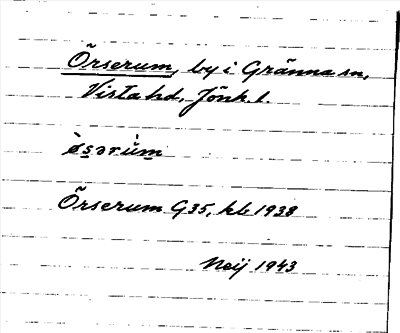 Örserum, by i Gränna sn,
Vista hd, Jönk. l.
Örserum G35, kb 1938
Neij 1943